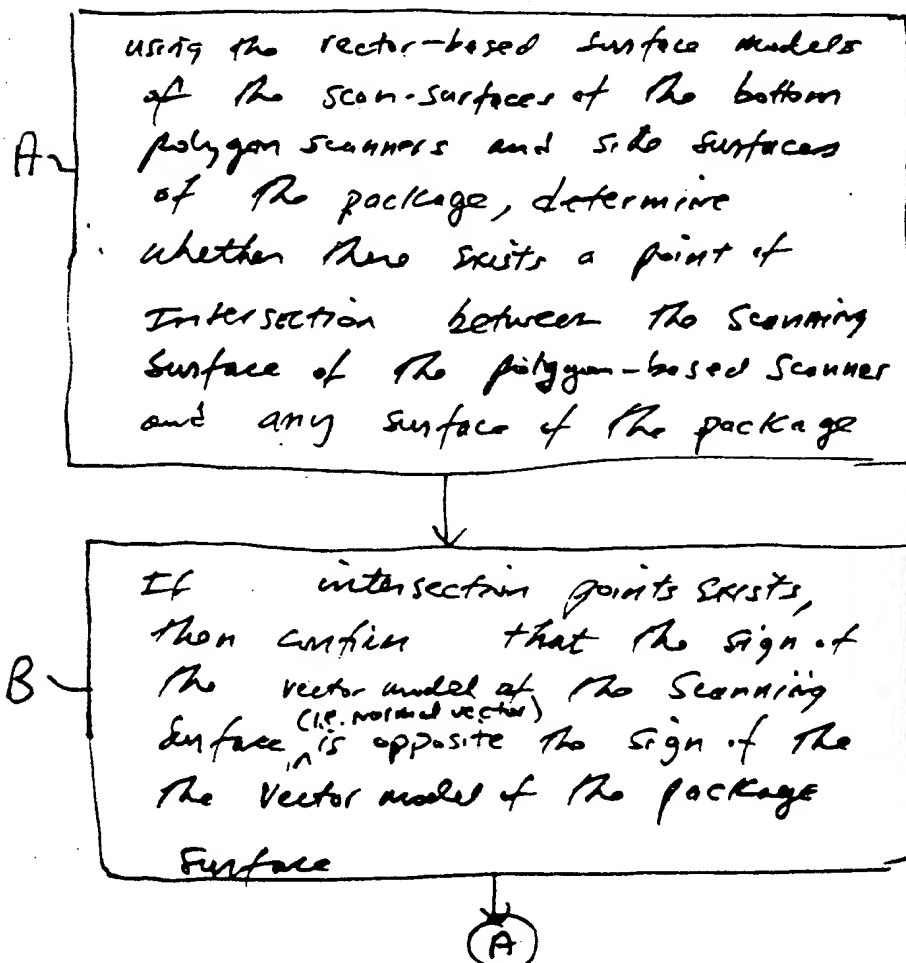 A
using the vector-based surface models
of the scan-surfaces of the bottom
polygon scanners and side surfaces
of the package, determine
whether there exists a point of
Intersection between the scanning
surface of the polygon-based scanner
and any surface of the package
B
If intersection points exists,
then confirm that the sign of
the vector model of the scanning
(i.e. normal vector)
surface is opposite the sign of the
the vector model of the package
surface
A